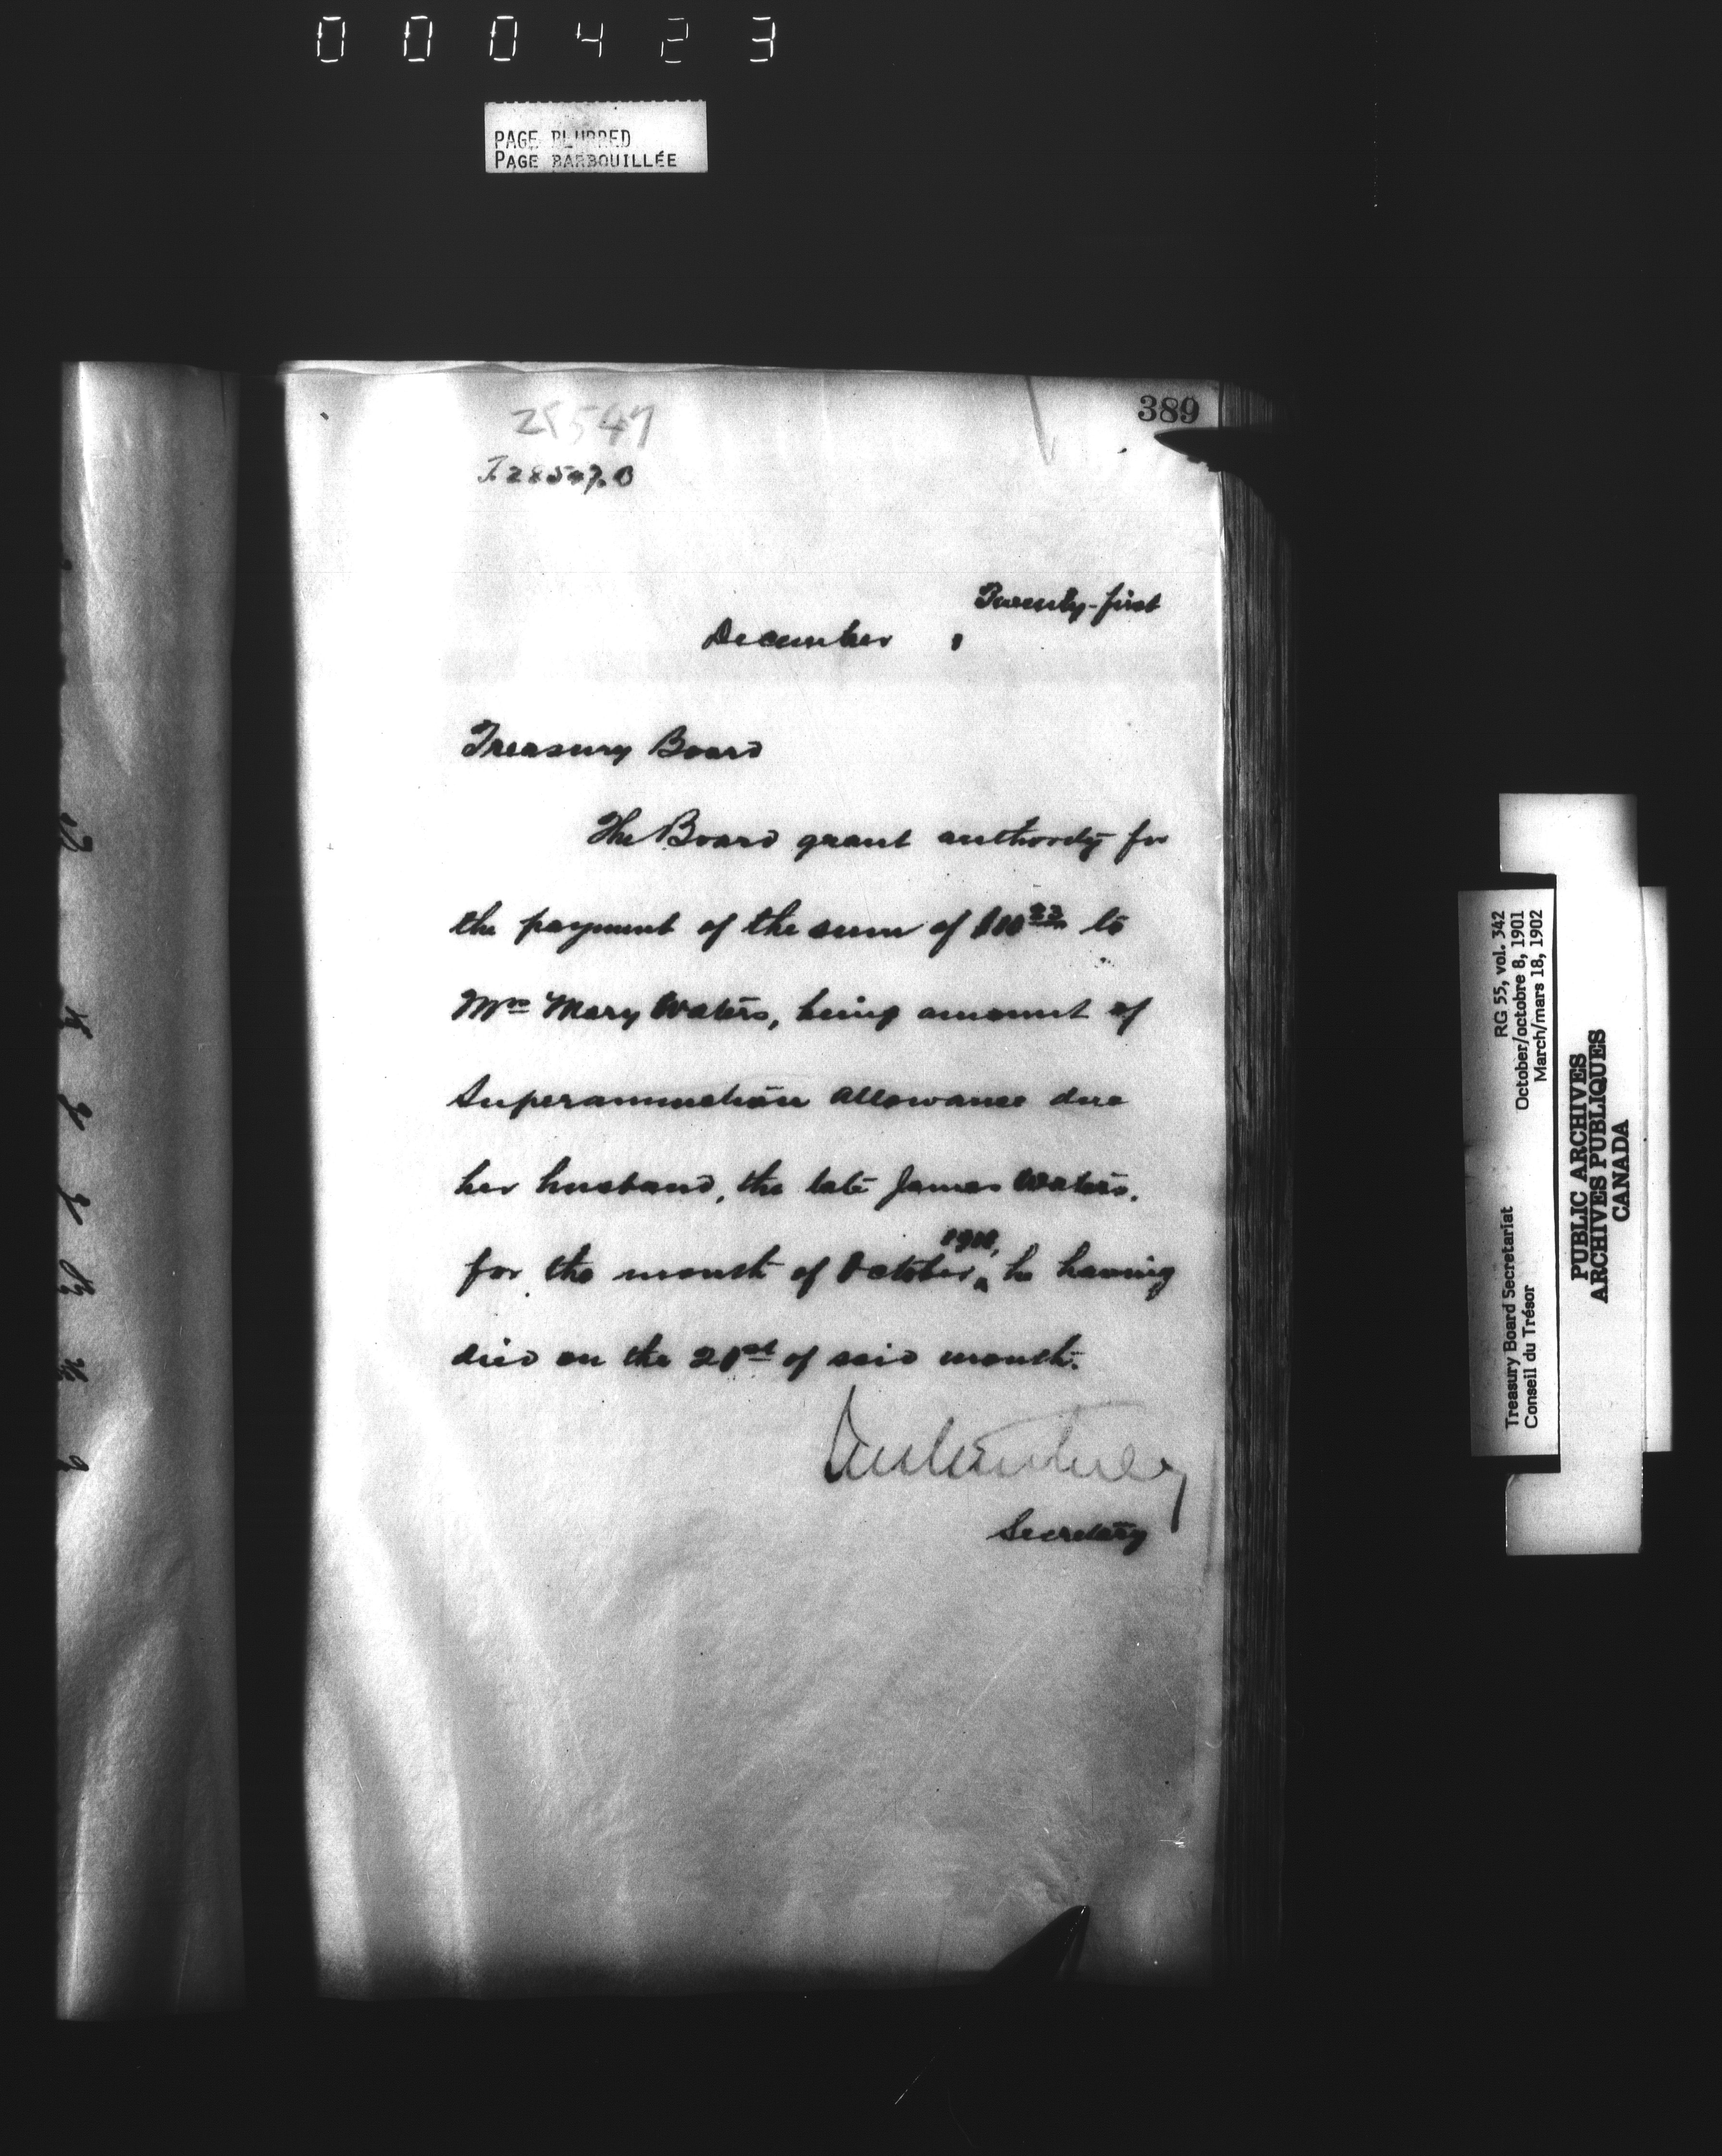 000423
PAGE BLURRED
PAGE BARBOUILLÉE
389
28547
T. 28547. B
Twenty-first
December ,
Treasury Board
The Board grant authority for
the payment of the sum of to
Mrs Mary Waters, being amount of
Superannuation allowance due
her husband, the late James Waters,
for the month of October, he having
died on the 21st of said month.
Secretary
Treasury Board Secretariat
Conseil du Trésor
RG 55, vol. 342
October/octobre 8, 1901
March/mars 18, 1902
PUBLIC ARCHIVES
ARCHIVES PUBLIQUES
CANADA